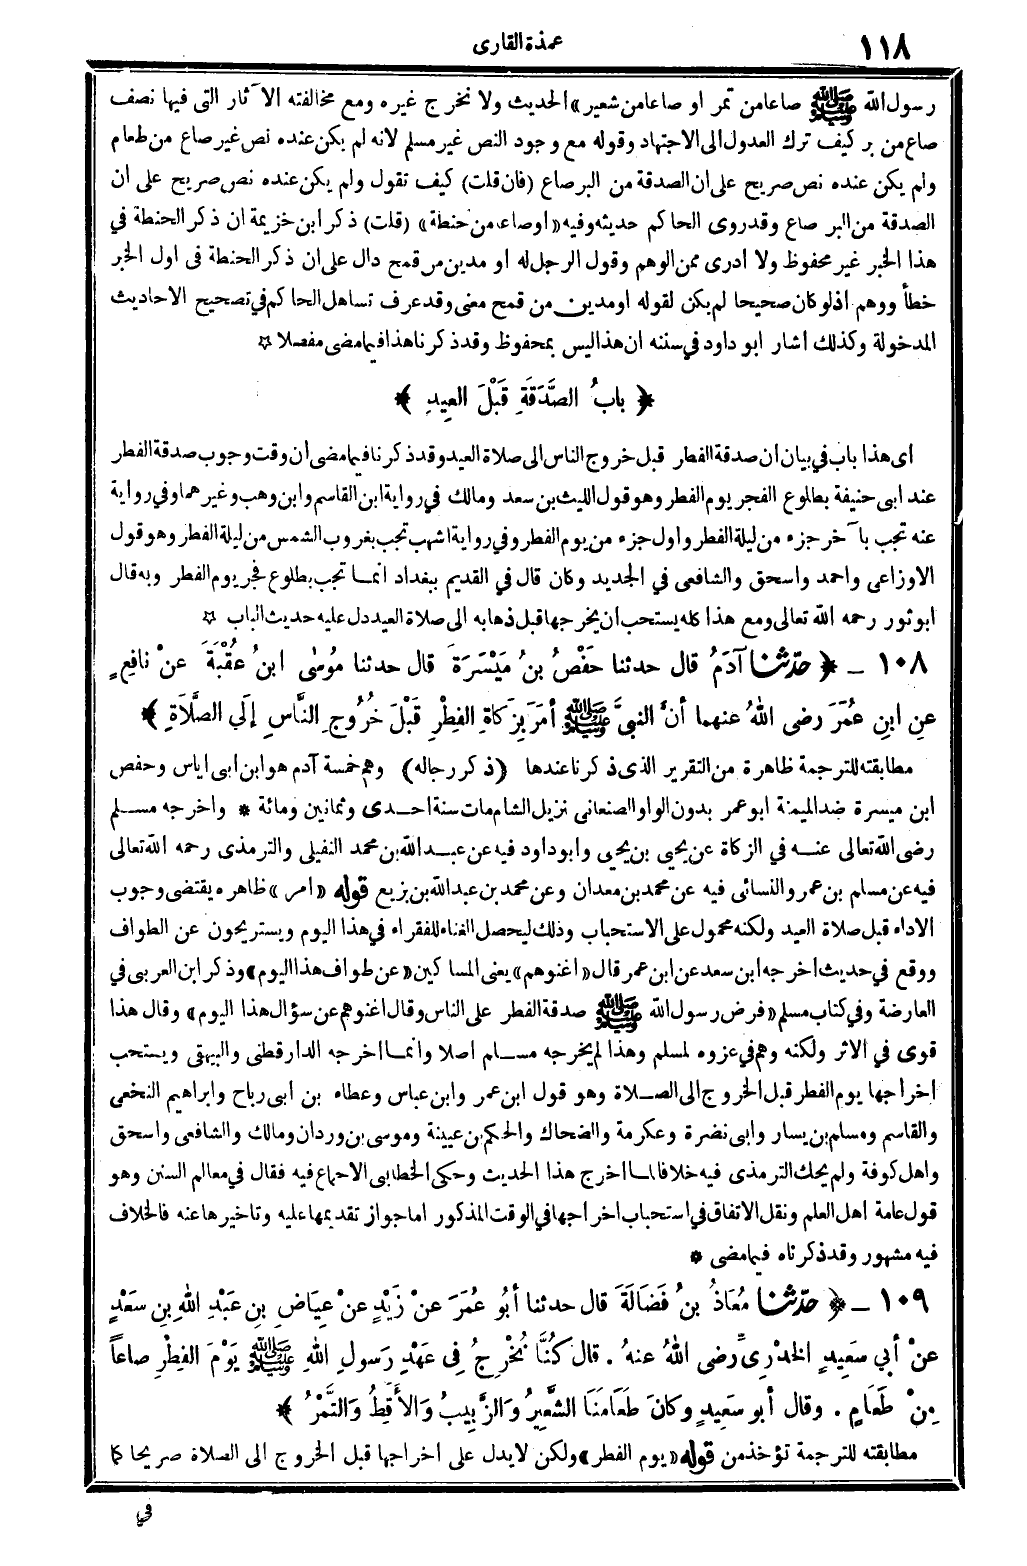 ١١٨
عمدة القارى
رسول الله ﷺ صاعا من تمر او صاعا من شعير» الحديث ولا نخرج غيره ومع مخالفته الآثار التى فيها نصف
صاع من بر كيف ترك العدول الى الاجتهاد وقوله مع وجود النص غير مسلم لانه لم يكن عنده نص غير صاع من طعام
ولم يكن عنده نص صريح على ان الصدقة من البر صاع (فان قلت) كيف تقول ولم يكن عنده نص صريح على ان
الصدقة من البر صاع وقد روى الحاكم حديثه وفيه «او صاع من حنطة» (قلت) ذكر ابن خزيمة ان ذكر الحنطة في
هذا الخبر غير محفوظ ولا ادرى ممن الوهم وقول الرجل له او مدين من قمح دال على ان ذكر الحنطة فى اول الخبر
خطأ ووهم اذ لو كان صحيحا لم يكن لقوله او مدين من قمح معنى وقد عرف تساهل الحاكم في تصحيح الاحاديث
المدخولة وكذلك اشار ابو داود في سننه ان هذا ليس بمحفوظ وقد ذكرنا هذا فيما مضى مفصلا ☆
﴿ بابُ الصَّدَقَةِ قَبْلَ العِيدِ ﴾
اى هذا باب في بيان ان صدقة الفطر قبل خروج الناس الى صلاة العيد وقد ذكرنا فيما مضى ان وقت وجوب صدقة الفطر
عند ابى حنيفة بطلوع الفجر يوم الفطر وهو قول الليث بن سعد ومالك في رواية ابن القاسم وابن وهب وغيرهما وفي رواية
عنه تجب بآخر جزء من ليلة الفطر واول جزء من يوم الفطر وفي رواية اشهب تجب بغروب الشمس من ليلة الفطر وهو قول
الاوزاعى واحمد واسحق والشافعى في الجديد وكان قال في القديم ببغداد انما تجب بطلوع فجر يوم الفطر وبه قال
ابو ثور رحمه الله تعالى ومع هذا كله يستحب ان يخرجها قبل ذهابه الى صلاة العيد دل عليه حديث الباب ☆
١٠٨ ــ ﴿ حدّثنا آدَمُ قال حدثنا حَفْصُ بنُ مَيْسَرَةَ قال حدثنا مُوسَى ابنُ عُقْبَةَ عنْ نافِعٍ
عنِ ابنِ عُمَرَ رضى اللهُ عنهما أنَّ النبىَّ ﷺ أمَرَ بِزَكاةِ الفِطْرِ قَبْلَ خُرُوجِ النَّاسِ إلَي الصَّلاَةِ ﴾
مطابقته للترجمة ظاهرة من التقرير الذى ذكرنا عندها (ذكر رجاله) وهم خمسة آدم هو ابن ابى اياس وحفص
ابن ميسرة ضد الميمنة ابو عمر بدون الواو الصنعانى نزيل الشام مات سنة احدى وثمانين ومائة * واخرجه مسلم
رضى الله تعالى عنه في الزكاة عن يحيى بن يحيى وابو داود فيه عن عبد الله بن محمد النفيلى والترمذى رحمه الله تعالى
فيه عن مسلم بن عمرو والنسائى فيه عن محمد بن معدان وعن محمد بن عبد الله بن بزيع قوله «امر» ظاهره يقتضى وجوب
الاداء قبل صلاة العيد ولكنه محمول على الاستحباب وذلك ليحصل الغناء للفقراء في هذا اليوم ويستريحون عن الطواف
ووقع في حديث اخرجه ابن سعد عن ابن عمر قال «اغنوهم» يعنى المساكين «عن طواف هذا اليوم» وذكر ابن العربى في
العارضة وفي كتاب مسلم «فرض رسول الله ﷺ صدقة الفطر على الناس وقال اغنوهم عن سؤال هذا اليوم» وقال هذا
قوى في الاثر ولكنه وهم في عزوه لمسلم وهذا لم يخرجه مسلم اصلا وانما اخرجه الدارقطنى والبيهقى ويستحب
اخراجها يوم الفطر قبل الخروج الى الصلاة وهو قول ابن عمر وابن عباس وعطاء بن ابى رباح وابراهيم النخعى
والقاسم ومسلم بن يسار وابى نضرة وعكرمة والضحاك والحكم بن عيينة وموسى بن وردان ومالك والشافعى واسحق
واهل كوفة ولم يحك الترمذى فيه خلافا لما اخرج هذا الحديث وحكى الخطابى الاجماع فيه فقال في معالم السنن وهو
قول عامة اهل العلم ونقل الاتفاق في استحباب اخراجها في الوقت المذكور اما جواز تقديمها عليه وتاخيرها عنه فالخلاف
فيه مشهور وقد ذكرناه فيما مضى *
١٠٩ ــ ﴿ حدّثنا مُعَاذُ بنُ فَضَالَةَ قال حدثنا أبُو عُمَرَ عنْ زَيْدٍ عنْ عِيَاضِ بنِ عَبْدِ اللهِ بنِ سَعْدٍ
عنْ أبي سَعِيدٍ الخدْرِىِّ رضى اللهُ عنهُ . قال كُنَّا نُخْرِجُ فِى عَهْدِ رَسولِ اللهِ ﷺ يَوْمَ الفِطْرِ صاعاً
مِنْ طَعَامٍ . وقال أبو سَعِيدٍ وكانَ طَعَامَنَا الشَّعِيرُ وَالزَّبِيبُ وَالأَقِطُ وَالتَّمْرُ ﴾
مطابقته للترجمة تؤخذ من قوله «يوم الفطر» ولكن لا يدل على اخراجها قبل الخروج الى الصلاة صريحا كما
في